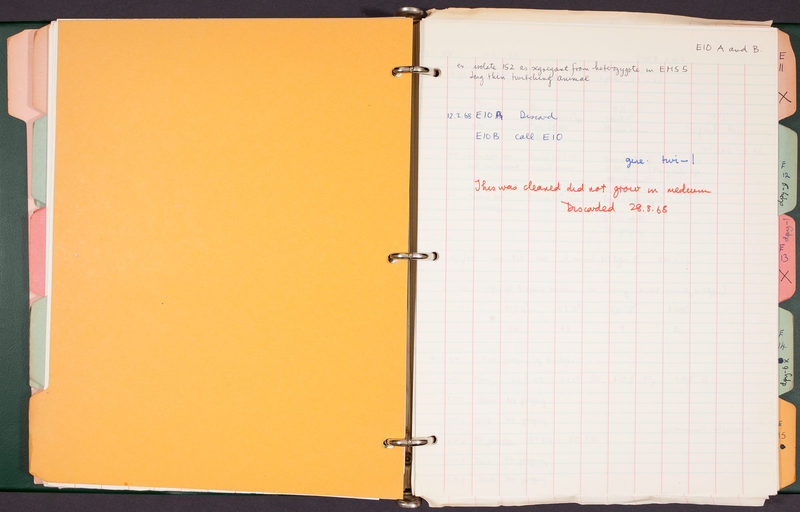 E10 A and B.
ex isolate 152 as segregant from heterozygote in EMS 5
long thin twitching animal
12.2.68 E10A Discard
E10B call E10
gene twi-!
This was cleaned did not grow in medium
Discarded 28.8.68
E
11
X
dpy-1
E
13
X
E
14
dpy-6 X
E
15